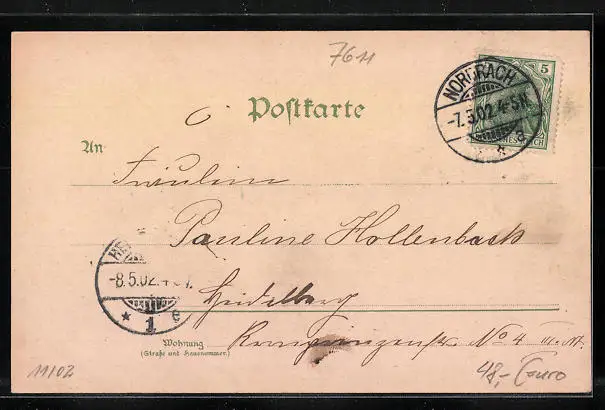 7611
5
NORDRACH
-7.5.02.4-5N.
a
Postkarte
An
Fräulein
Pauline Hollenbach
HE
-8.5.02.4
1 e
Heidelberg
Wohnung
(Straße und Hausnummer)
Kronprinzenstr. No 4 III. St.
11102
48,- Euro